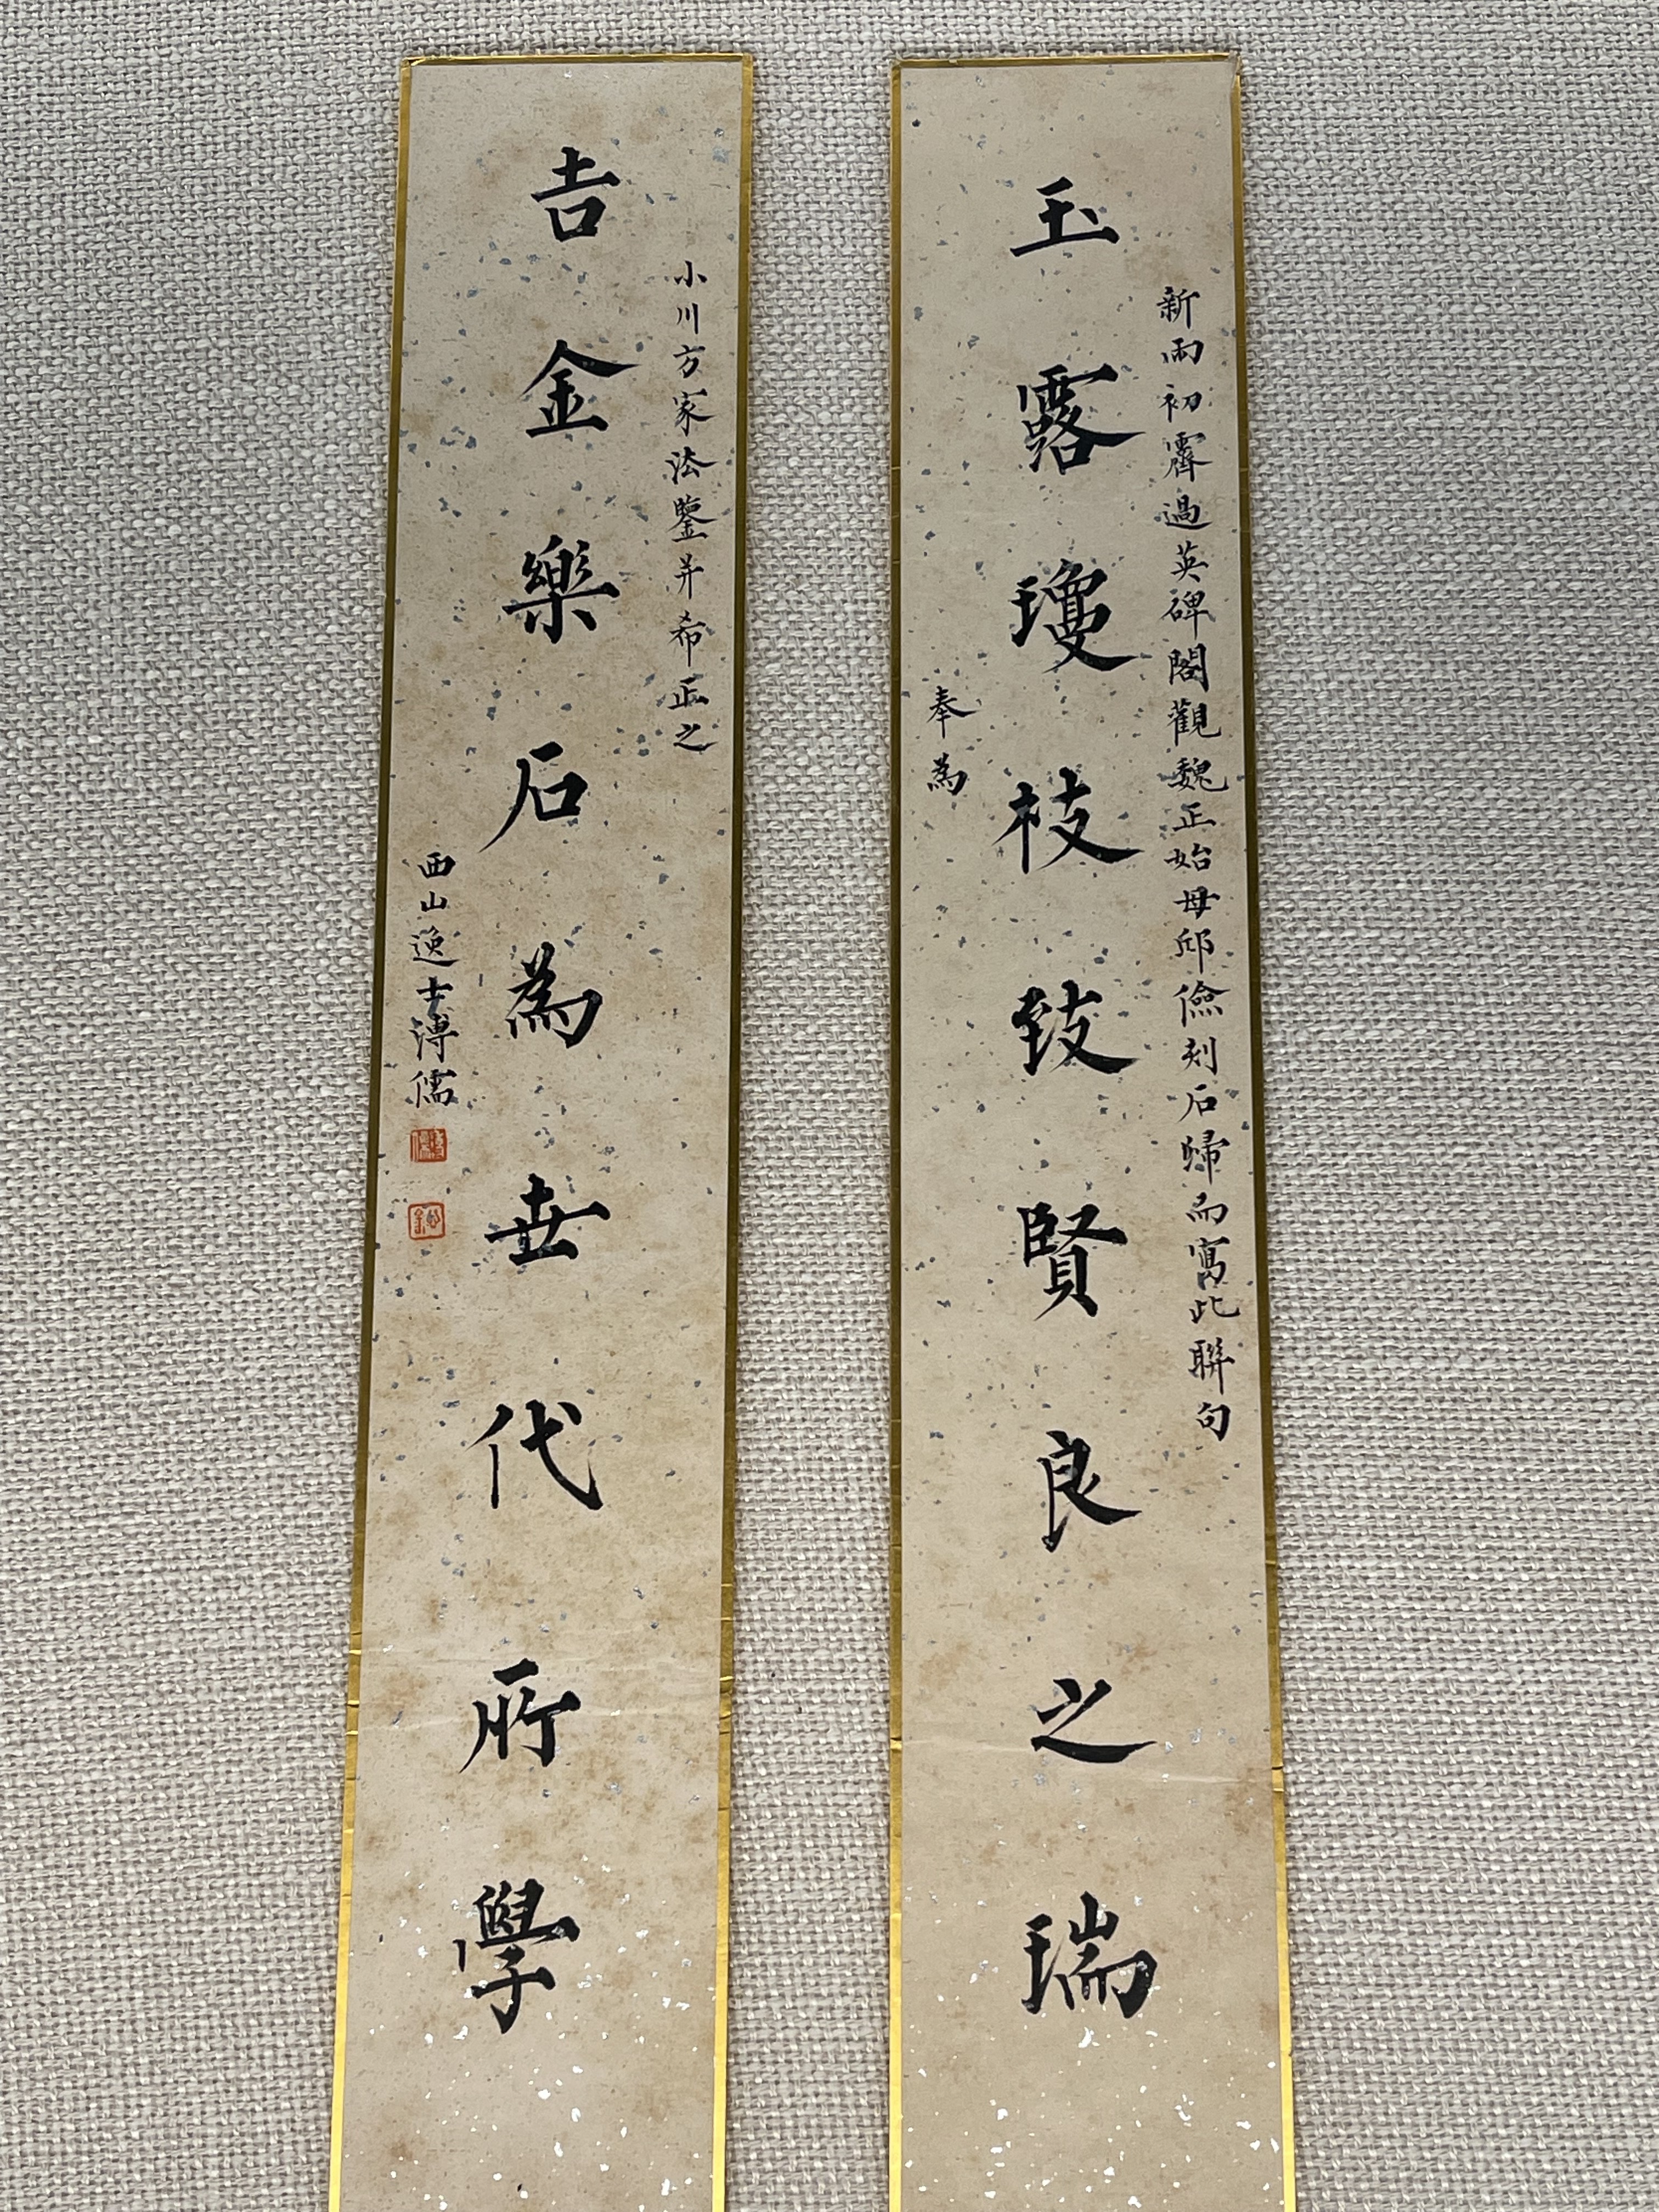 新雨初霽過英碑閣觀魏正始毋邱儉刻石歸而寫此聯句
玉露瓊枝致賢良之瑞
奉為
小川方家法鑒并希正之
吉金樂石為世代所學
西山逸士溥儒
溥儒